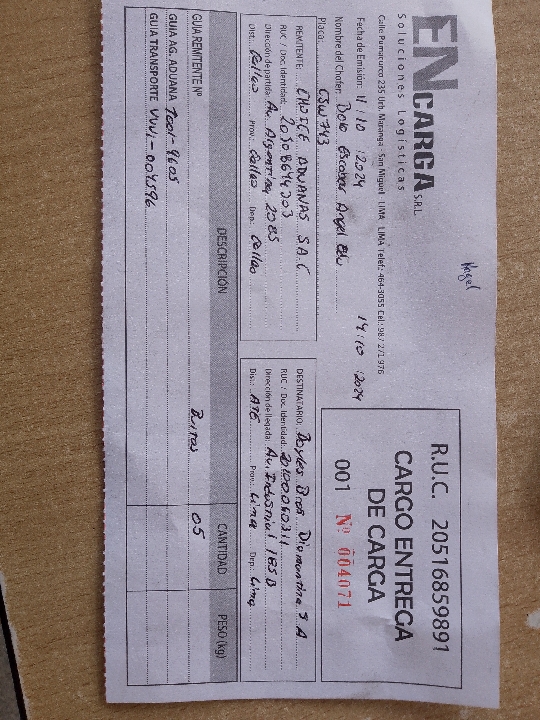 EN CARGA S.R.L.
Soluciones Logísticas
Calle Pumacurco 235 Urb. Maranga - San Miguel - LIMA - LIMA Telef.: 464-3055 Cel.: 987 271 976
R.U.C. 20516859891
CARGO ENTREGA
DE CARGA
001 Nº 004071
Fecha de Emisión: 11 / 10 / 2024 14 / 10 / 2024
Nombre del Chofer: Escobar Angel Edu
Placa: CSW743
REMITENTE: CHOICE ADUANAS S.A.C
RUC / Doc. Identidad: 20508644203
Dirección de partida: Av. Argentina 2085
Dist.: Callao Prov.: Callao Dep.: Callao
DESTINATARIO: Boyles Bros Diamantina S.A
RUC / Doc. Identidad: 20100060311
Dirección de llegada: Av. Industrial 185 B
Dist.: ATE Prov.: Lima Dep.: Lima
DESCRIPCIÓN CANTIDAD PESO (kg)
GUIA REMITENTE Nº Bultos 05
GUIA AG. ADUANA T001-9605
GUIA TRANSPORTE VVV1-004596